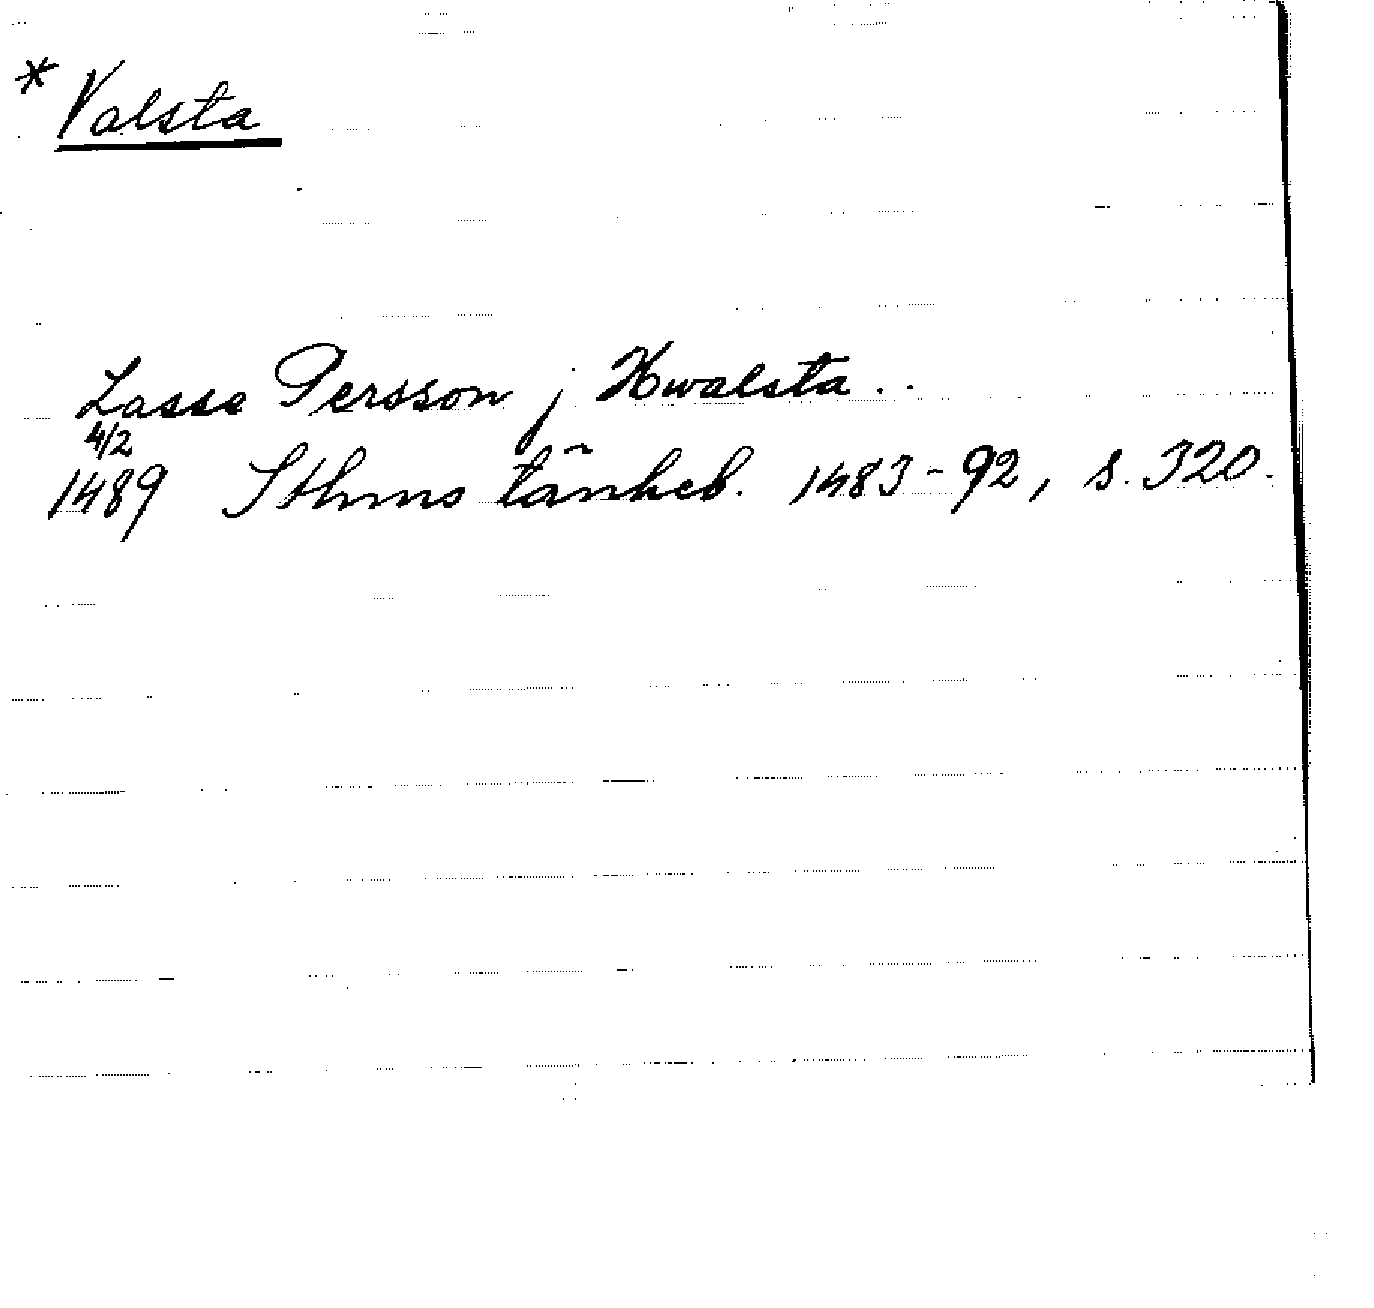 * Valsta
Lasse Persson j Hwalsta..
4/2
1489 Sthms tänkeb. 1483-92, s. 320.